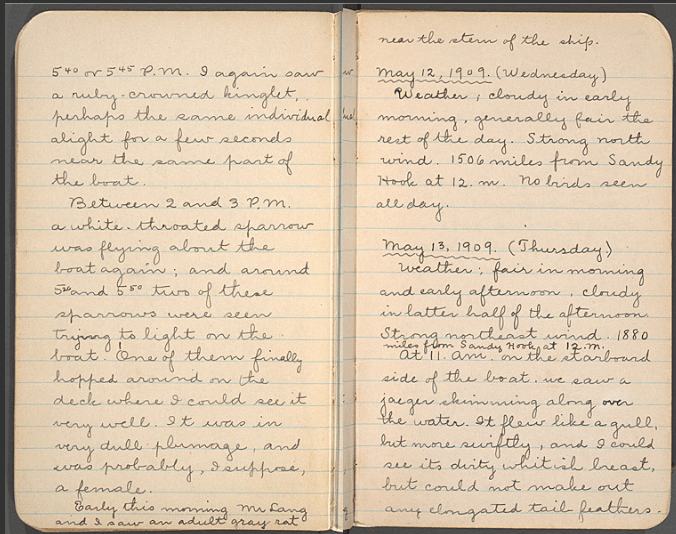 5⁴⁰ or 5⁴⁵ P.M. I again saw
a ruby-crowned kinglet,
perhaps the same individual
alight for a few seconds
near the same part of
the boat.
Between 2 and 3 P.M.
a white-throated sparrow
was flying about the
boat again; and around
5³⁰ and 5⁵⁰ two of these
sparrows were seen
trying to light on the
boat. One of them finally
hopped around on the
deck where I could see it
very well. It was in
very dull plumage, and
was probably, I suppose,
a female.
Early this morning Mr Lang
and I saw an adult gray rat
near the stern of the ship.
May 12, 1909. (Wednesday)
Weather; cloudy in early
morning, generally fair the
rest of the day. Strong north
wind. 1506 miles from Sandy
Hook at 12. m. No birds seen
all day.
May 13, 1909. (Thursday)
Weather; fair in morning
and early afternoon, cloudy
in latter half of the afternoon.
Strong northeast wind. 1880
miles from Sandy Hook at 12 m.
At 11 Am. on the starboard
side of the boat. we saw a
jaeger skimming along over
the water. It flew like a gull,
but more swiftly, and I could
see its dirty whitish breast,
but could not make out
any elongated tail-feathers.